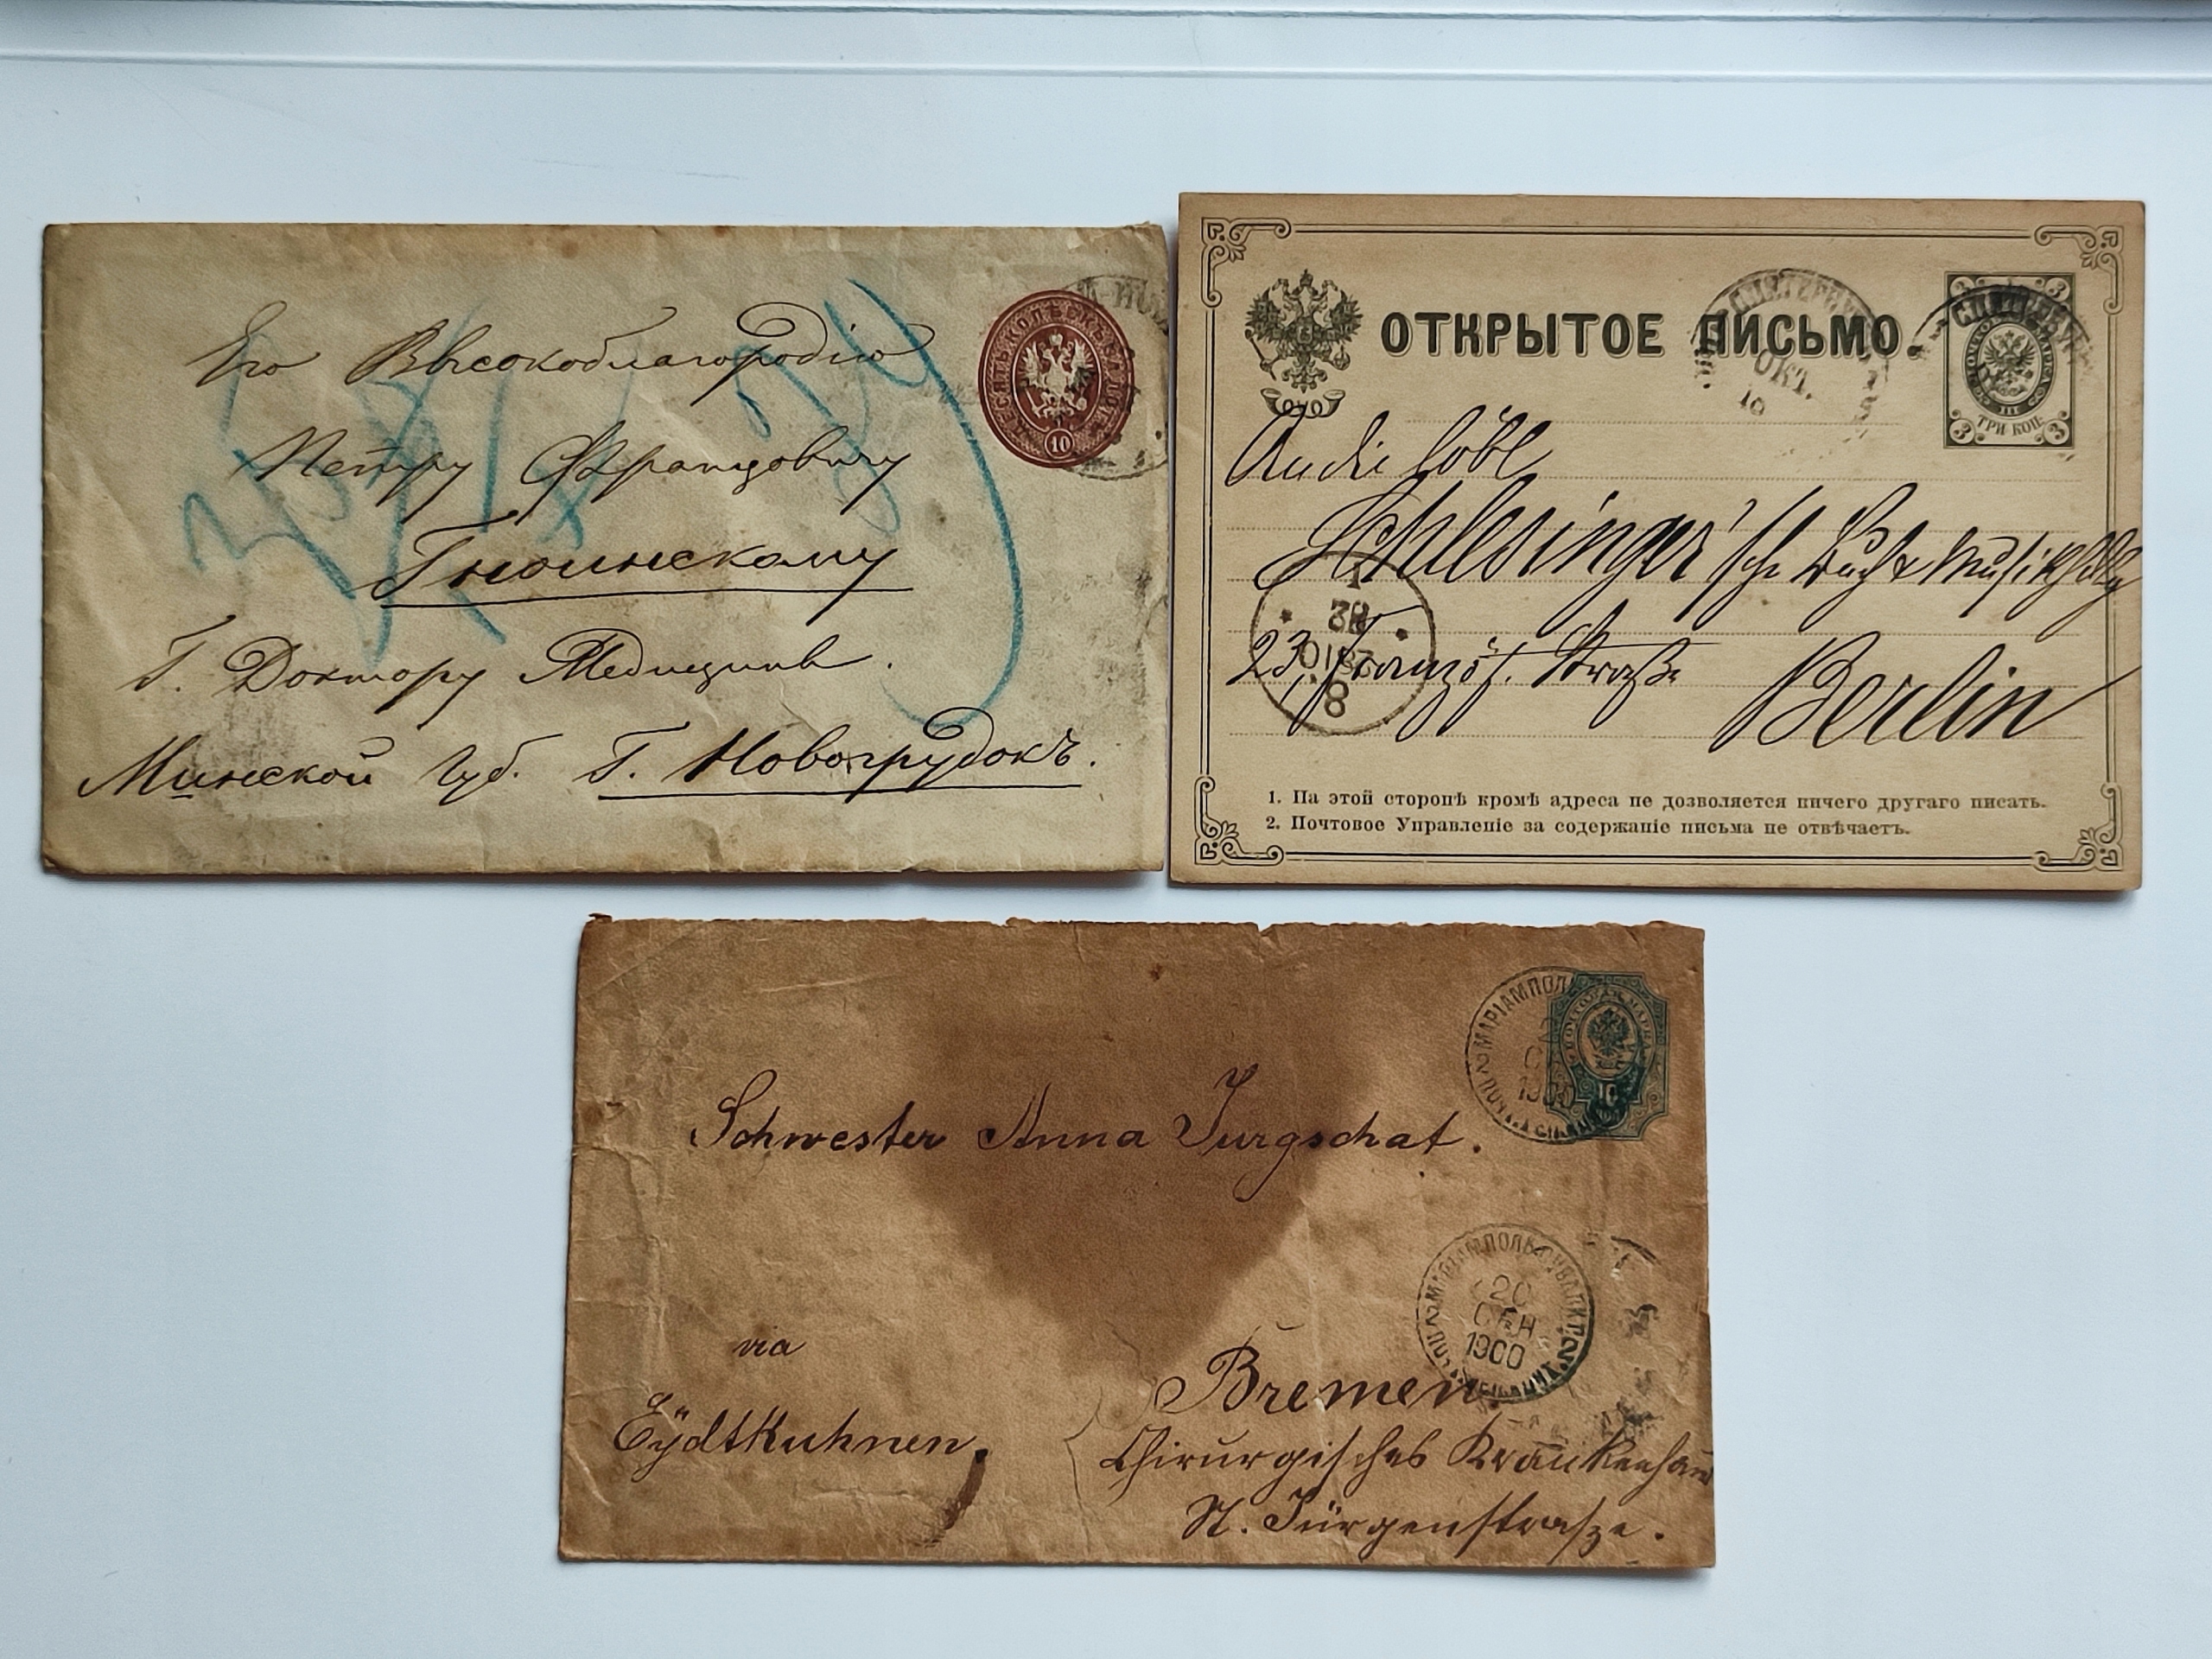 Его Высокоблагородію
Петру Францовичу
Гноинскому
Г. Доктору Медицины.
Минской Губ. Г. Новогрудокъ.
10
ОТКРЫТОЕ ПИСЬМО.
ОКТ.
3 3
ТРИ КОП.
3 3
An die löbl
Schlesinger'sche Buch & Musikhdlg
23, Französ. Straße
Berlin
1
82
8
1. На этой сторонѣ кромѣ адреса не дозволяется ничего другаго писать.
2. Почтовое Управленіе за содержаніе письма не отвѣчаетъ.
МАРІАМПОЛ
1900
ПОЧТОВАЯ МАРКА
10
Schwester Anna Jurgschat.
МАРІАМПОЛЬ СУВАЛК. Г.
20
СЕН
1900
via
Eydtkuhnen.
Bremen.
Chirurgisches Krankenhaus
St. Jürgenstrasze.